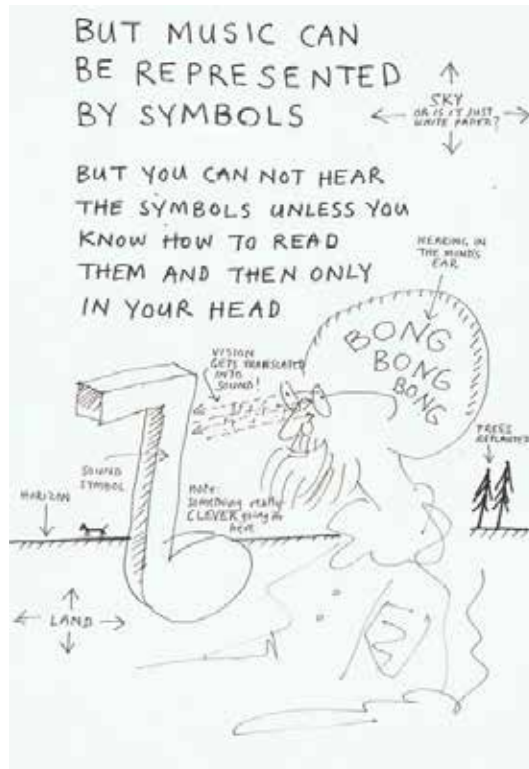 BUT MUSIC CAN
BE REPRESENTED
BY SYMBOLS
SKY
OR IS IT JUST
WHITE PAPER?
BUT YOU CAN NOT HEAR
THE SYMBOLS UNLESS YOU
KNOW HOW TO READ
THEM AND THEN ONLY
IN YOUR HEAD
HEARING IN
THE MIND'S
EAR
BONG
BONG
BONG
VISION
GETS TRANSLATED
INTO
SOUND!
TREES
SOUND
SYMBOL
NOTE:
something really
CLEVER going on
here
HORIZON
LAND